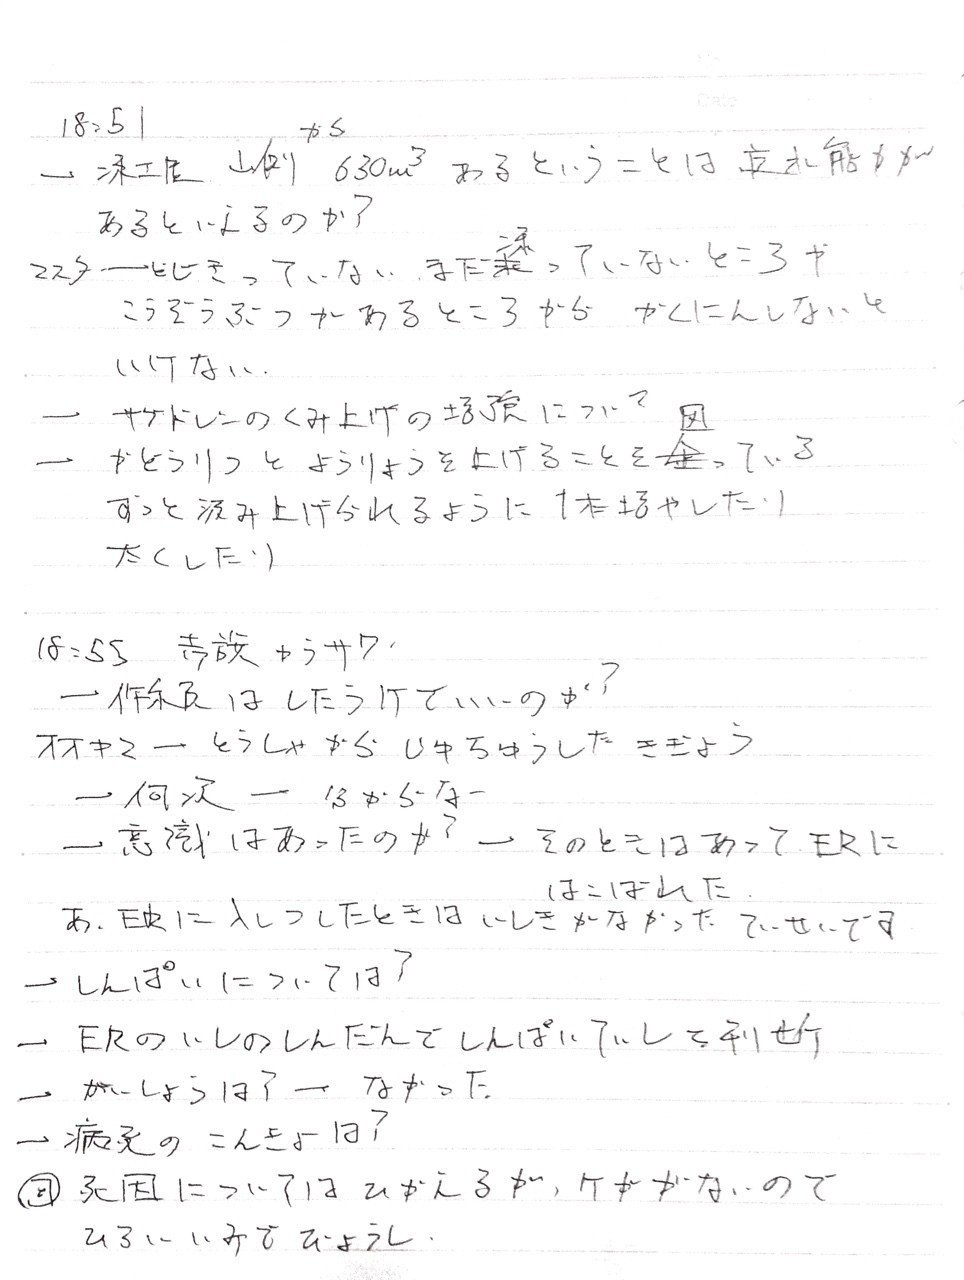 18:51
→ 凍土 山側から 630m³ あるということは 止水能力が
あるといえるのか?
マスダ ― とじきっていない まだ凍っていないところや
こうぞうぶつがあるところから かくにんしないと
いけない.
― サブドレンのくみ上げの増強について
― かどうりつと ようりょうを上げることを図っている
ずっと汲み上げられるように 1本増やしたり
太くしたり
18:55
→ 作業員は したうけでいいのか?
オオキミ → とうしゃから じゅちゅうした きぎょう
→ 何次 ― わからない
→ 意識はあったのか? → そのときはあって ERに
はこばれた.
あ、ERに 入しつしたときは いしきがなかった ていせいです
→ しんぱいについては?
→ ERのいしのしんだんで しんぱいていしと判断
→ がいしょうは? → なかった
→ 病死の こんきょは?
死因については ひかえるが、ケガがないので
ひろいいみで びょうし.